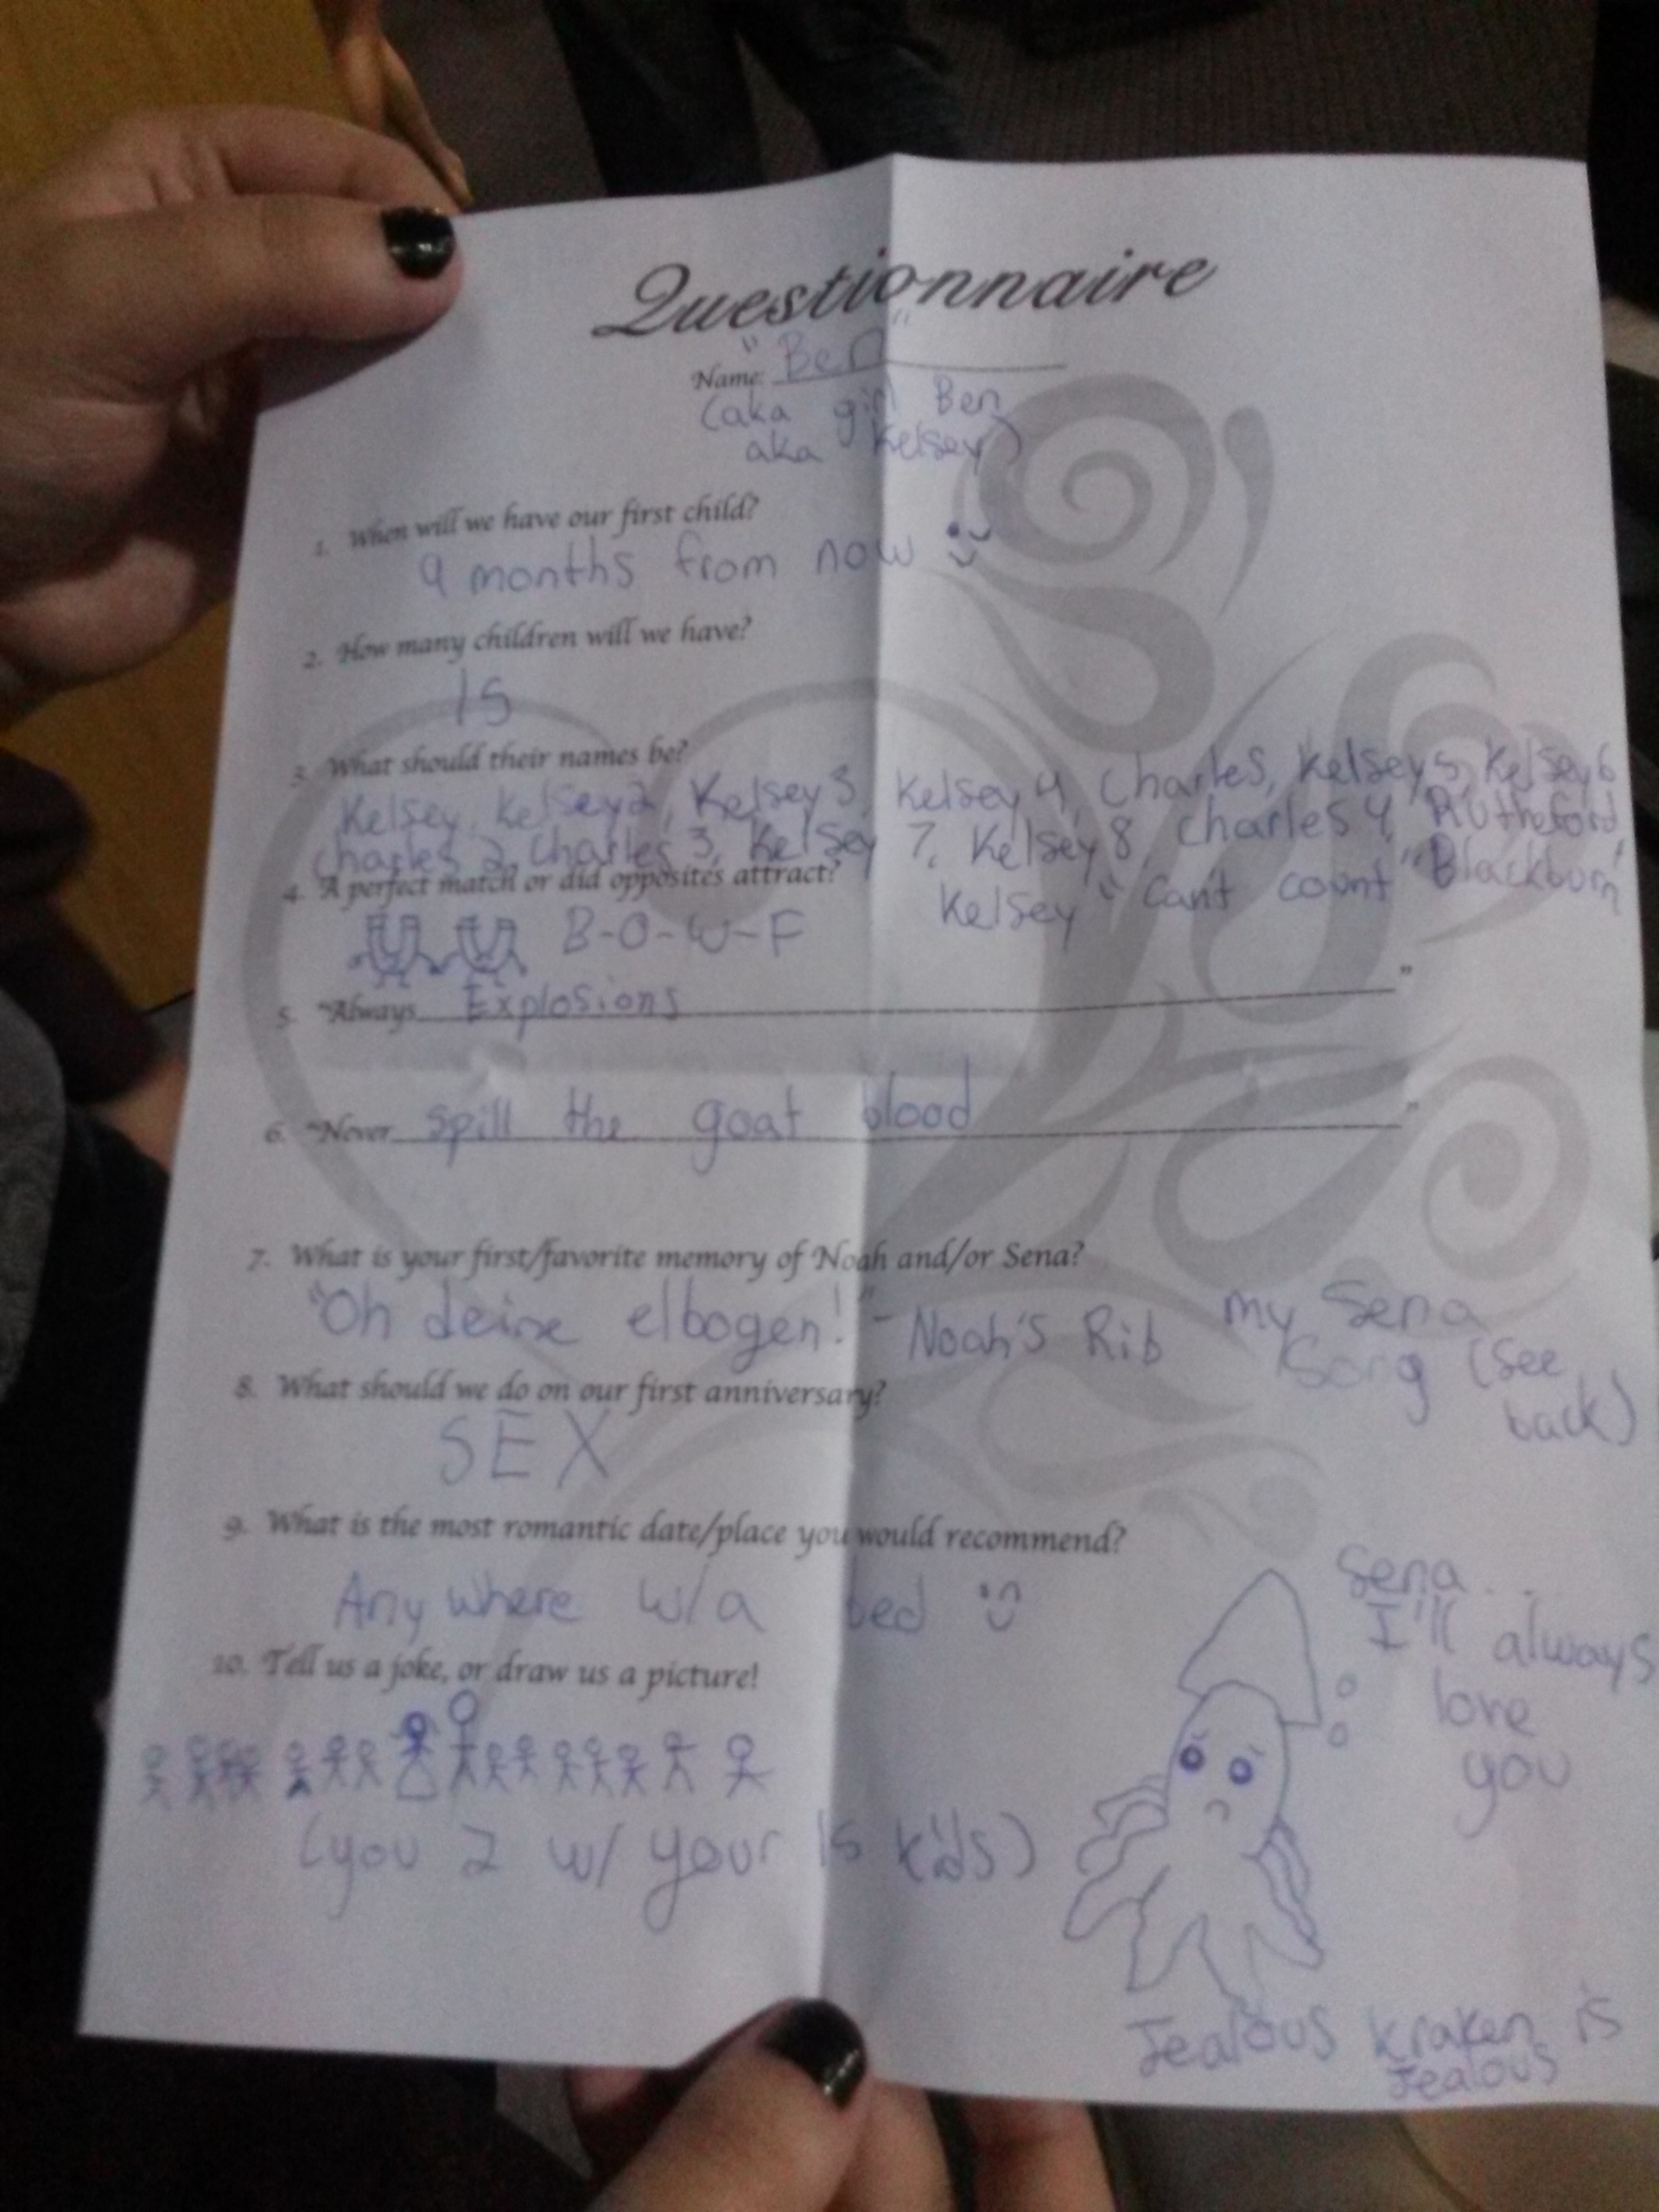 Questionnaire
Name: "Ben"
(aka girl Ben
aka Kelsey)
1. When will we have our first child?
9 months from now
2. How many children will we have?
15
3. What should their names be?
Kelsey, Kelsey 2, Kelsey 3, Kelsey 4, Charles, Kelsey 5, Kelsey 6
Charles 2, Charles 3, Kelsey 7, Kelsey 8, Charles 4, Rutheford,
Kelsey "Can't count" Blackburn
4. A perfect match or did opposites attract?
B-O-W-F
5. "Always Explosions"
6. "Never spill the goat blood"
7. What is your first/favorite memory of Noah and/or Sena?
"Oh deine elbogen!" - Noah's Rib
my Sena
Song (see
back)
8. What should we do on our first anniversary?
SEX
9. What is the most romantic date/place you would recommend?
Anywhere w/a bed
10. Tell us a joke, or draw us a picture!
(you 2 w/ your 15 kids)
Sena...
I'll always
love
you
Jealous kraken is
Jealous